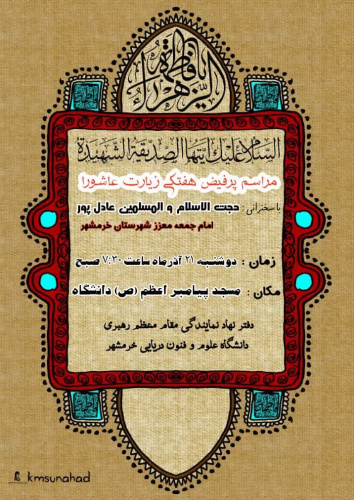 یا فاطمة الزهراء
السلام علیک ایتها الصدیقة الشهیدة
مراسم پرفیض هفتگی زیارت عاشورا
با سخنرانی: حجت الاسلام و المسلمین عادل پور
امام جمعه معزز شهرستان خرمشهر
زمان : دوشنبه ۲۱ آذرماه ساعت ۷:۳۰ صبح
مکان : مسجد پیامبر اعظم (ص) دانشگاه
دفتر نهاد نمایندگی مقام معظم رهبری
دانشگاه علوم و فنون دریایی خرمشهر
kmsunahad